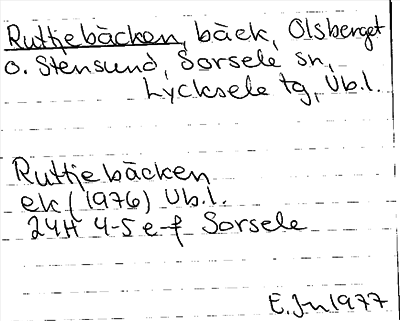 Ruttjebäcken, bäck, Olsberget
o. Stensund, Sorsele sn,
Lycksele tg, Vb.l.
Ruttjebäcken
ek (1976) Vb.l.
24H 4-5 e-f Sorsele
E. Jn 1977